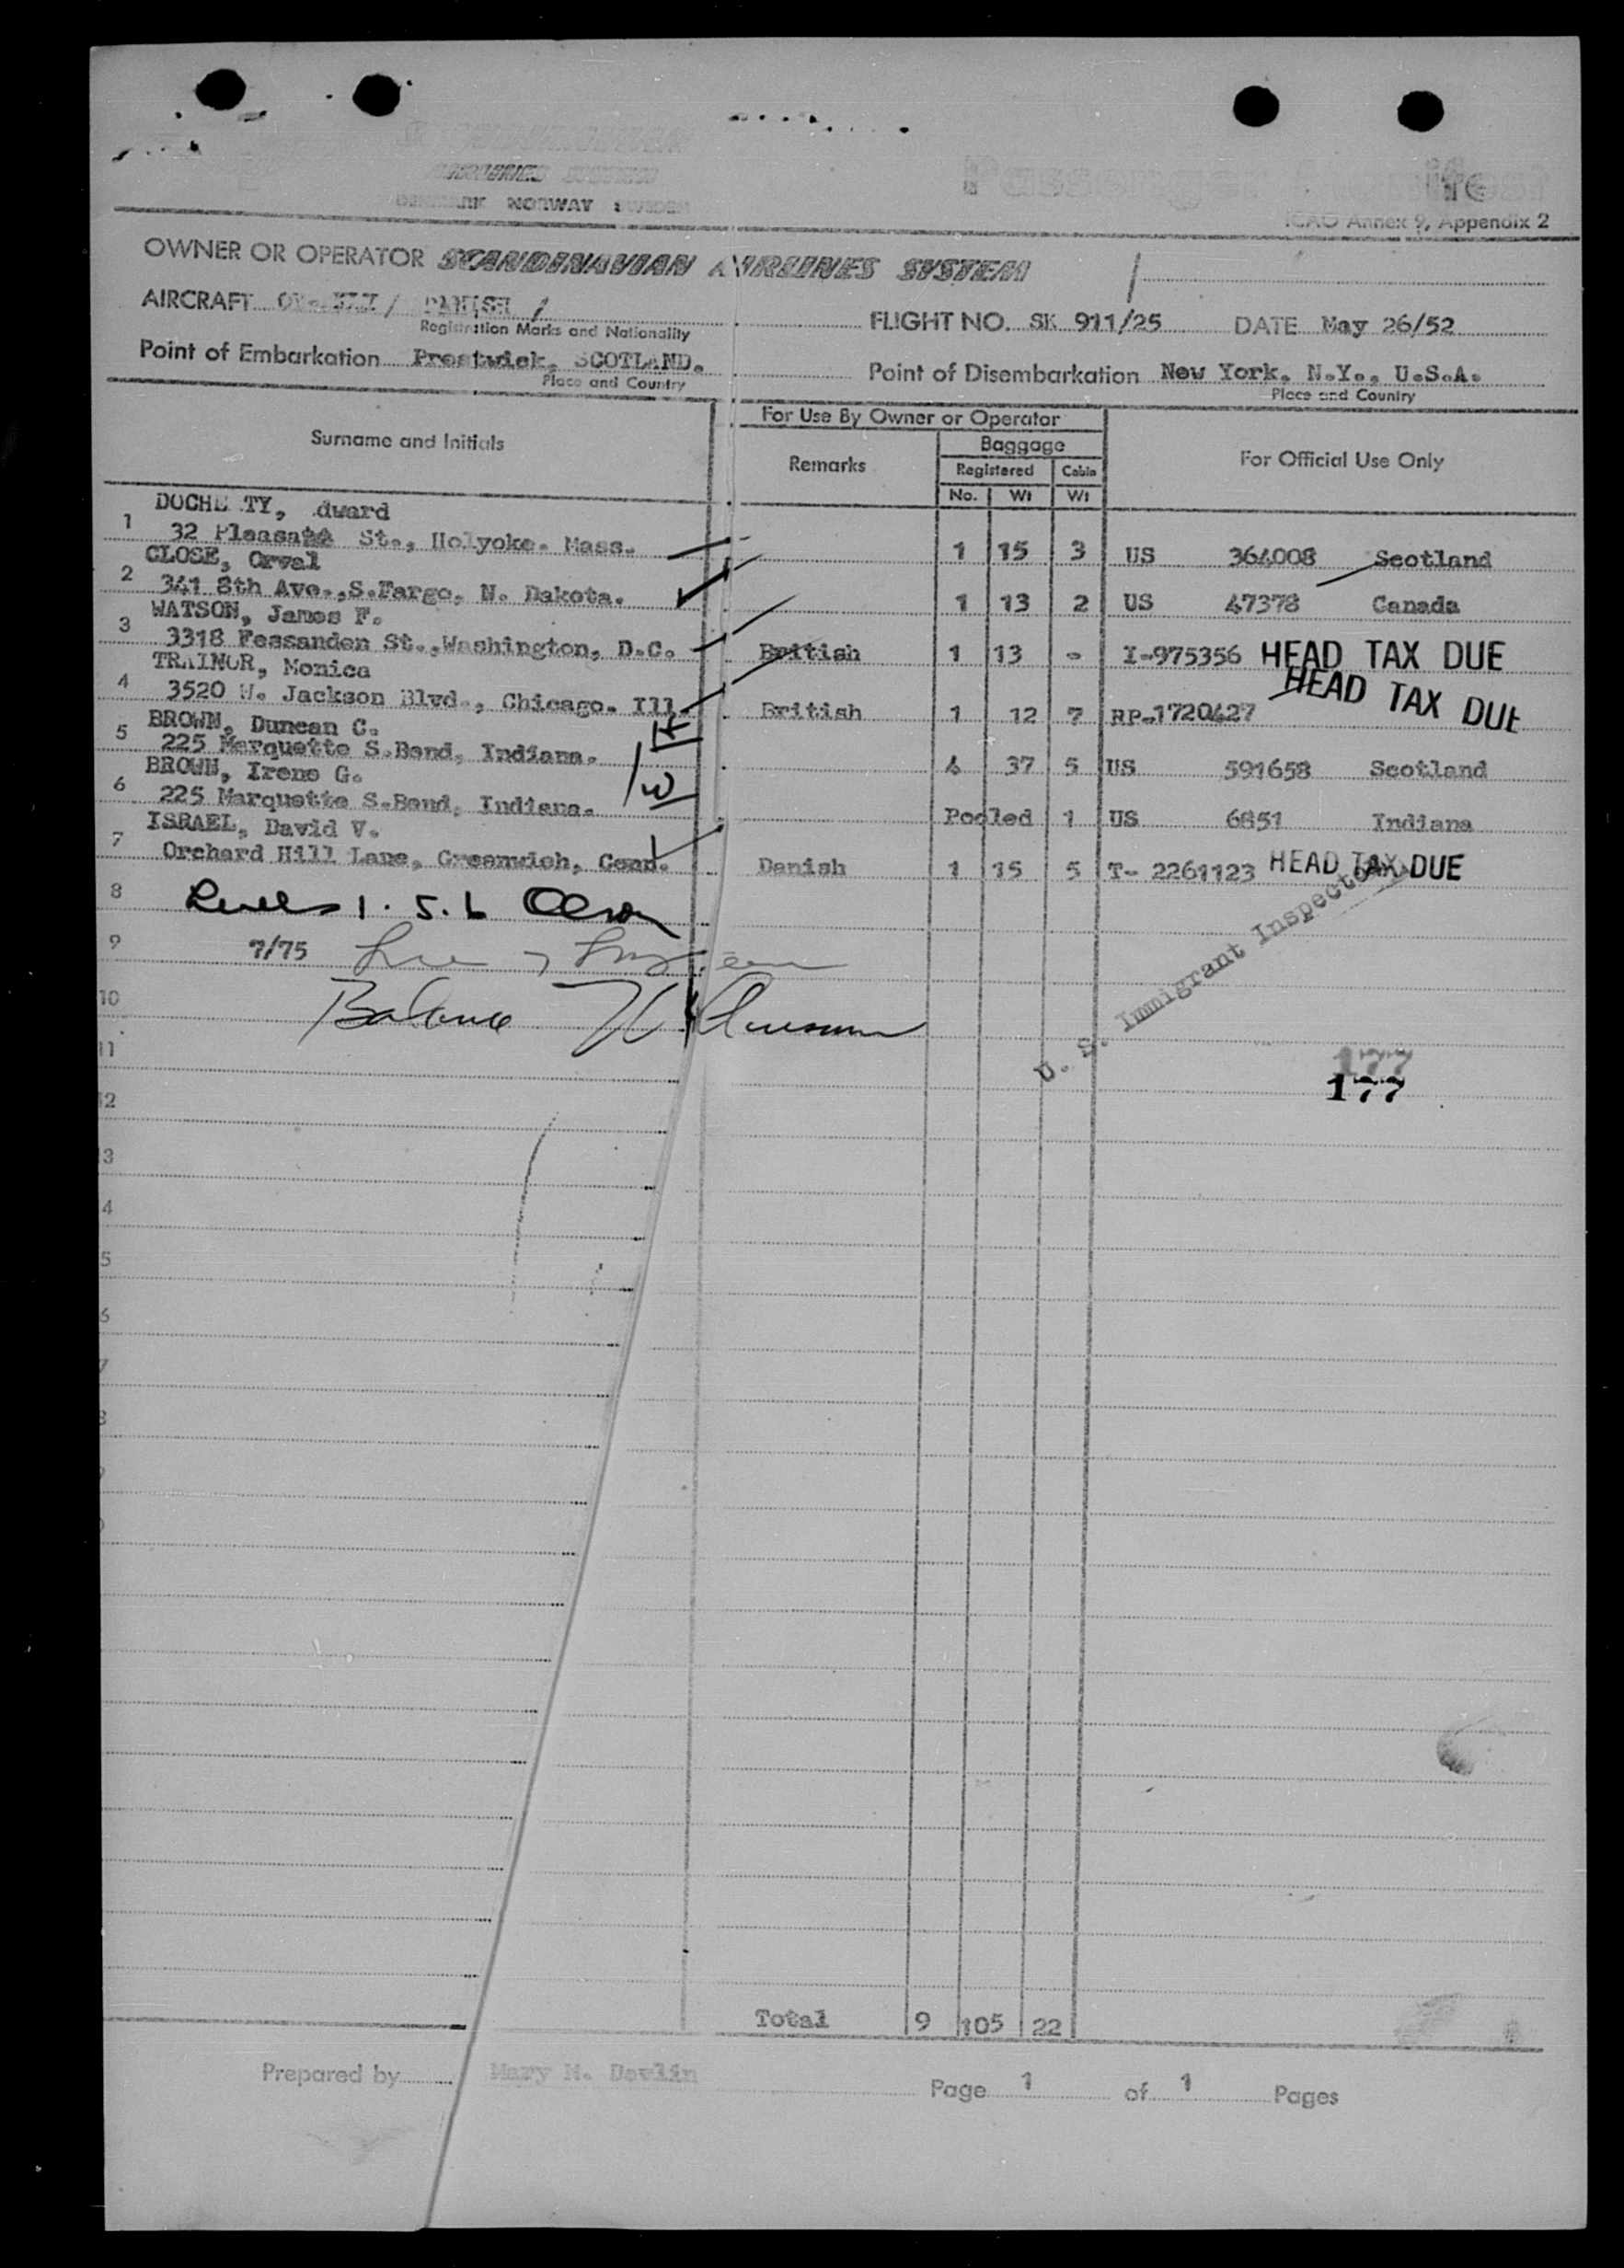 NORWAY SWEDEN
ICAO Annex 9, Appendix 2
OWNER OR OPERATOR SCANDINAVIAN AIRLINES SYSTEM
AIRCRAFT DANISH /
Registration Marks and Nationality
FLIGHT NO. SK 911/25 DATE May 26/52
Point of Embarkation Prestwick, SCOTLAND.
Place and Country
Point of Disembarkation New York, N.Y., U.S.A.
Place and Country
Surname and Initials
For Use By Owner or Operator
Remarks
Baggage
Registered Cabin
No. Wt Wt
For Official Use Only
DOCHE TY, dward
1 32 Pleasant St., Holyoke. Mass. 1 15 3 US 364008 Scotland
CLOSE, Orval
2 341 8th Ave.,S.Fargo, N. Dakota. 1 13 2 US 47378 Canada
WATSON, James F.
3 3318 Fessanden St.,Washington, D.C. British 1 13 - I-975356 HEAD TAX DUE
TRAINOR, Monica
4 3520 W. Jackson Blvd., Chicago. Ill. British 1 12 7 RP-1720427 HEAD TAX DUE
BROWN, Duncan C.
5 225 Marquette S.Bend, Indiana. 4 37 5 US 591658 Scotland
BROWN, Irene G.
6 225 Marquette S.Bend, Indiana. Pooled 1 US 6851 Indiana
ISRAEL, David V.
7 Orchard Hill Lane, Greenwich, Conn. Danish 1 15 5 T- 2261123 HEAD TAX DUE
8 1. 5. 6 Olson
9 7/75
10 Balance
U. S. Immigrant Inspector
11
177
177
12
3
4
5
6
7
Total 9 105 22
Prepared by Mary M. Devlin
Page 1 of 1 Pages